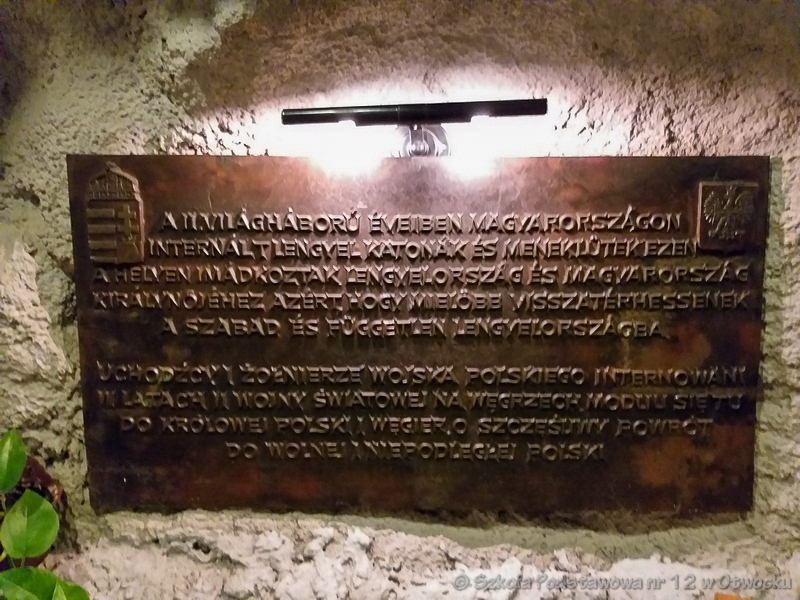 A II. VILÁGHÁBORÚ ÉVEIBEN MAGYARORSZÁGON
INTERNÁLT LENGYEL KATONÁK ÉS MENEKÜLTEK EZEN
A HELYEN IMÁDKOZTAK LENGYELORSZÁG ÉS MAGYARORSZÁG
KIRÁLYNŐJÉHEZ AZÉRT, HOGY MIELŐBB VISSZATÉRHESSENEK
A SZABAD ÉS FÜGGETLEN LENGYELORSZÁGBA
UCHODŹCY I ŻOŁNIERZE WOJSKA POLSKIEGO INTERNOWANI
W LATACH II WOJNY ŚWIATOWEJ NA WĘGRZECH, MODLILI SIĘ TU
DO KRÓLOWEJ POLSKI I WĘGIER, O SZCZĘŚLIWY POWRÓT
DO WOLNEJ I NIEPODLEGŁEJ POLSKI
© Szkoła Podstawowa nr 12 w Otwocku